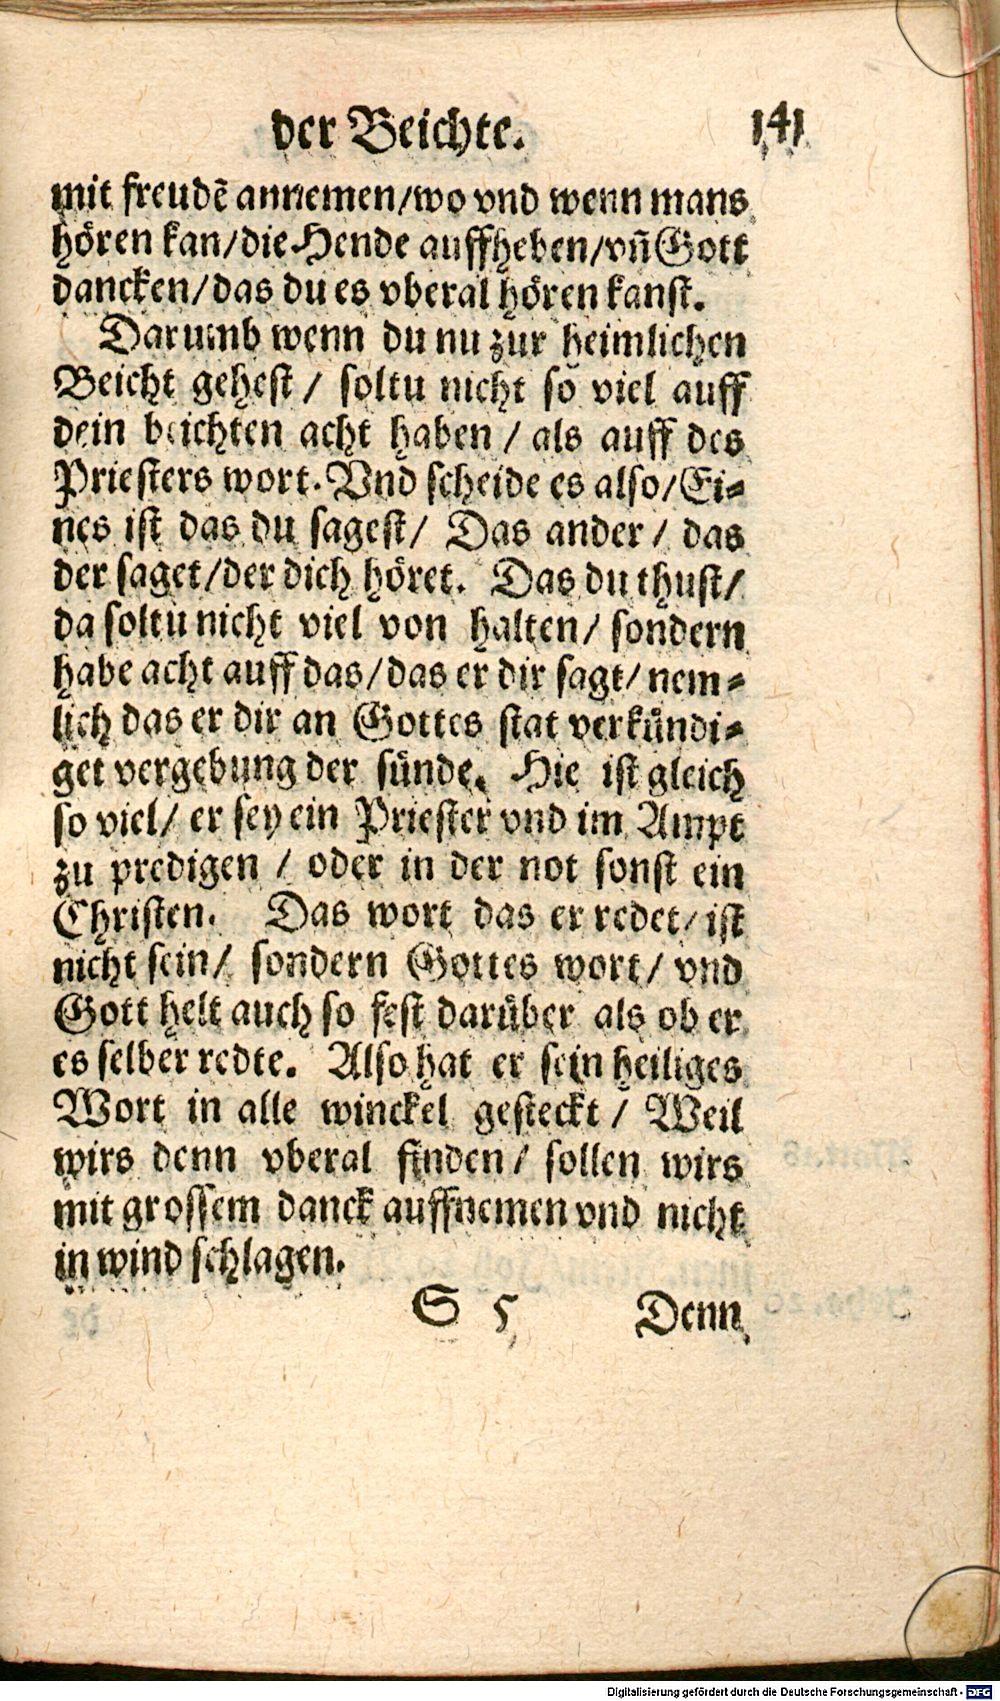 der Beichte. 141
mit freudẽ annemen/wo vnd wenn mans
hören kan/die Hende auffheben/vñ Gott
dancken/das du es vberal hören kanst.
Darumb wenn du nu zur heimlichen
Beicht gehest/ soltu nicht so viel auff
dein beichten acht haben/ als auff des
Priesters wort. Vnd scheide es also/Ei-
nes ist das du sagest/ Das ander/ das
der saget/der dich höret. Das du thust/
da soltu nicht viel von halten/ sondern
habe acht auff das/das er dir sagt/ nem-
lich das er dir an Gottes stat verkündi-
get vergebung der sünde. Hie ist gleich
so viel/ er sey ein Priester vnd im Ampt
zu predigen/ oder in der not sonst ein
Christen. Das wort das er redet/ ist
nicht sein/ sondern Gottes wort/ vnd
Gott helt auch so fest darüber als ob er
es selber redte. Also hat er sein heiliges
Wort in alle winckel gesteckt/ Weil
wirs denn vberal finden/ sollen wirs
mit grossem danck auffnemen vnd nicht
in wind schlagen.
S 5 Denn
Digitalisierung gefördert durch die Deutsche Forschungsgemeinschaft - DFG